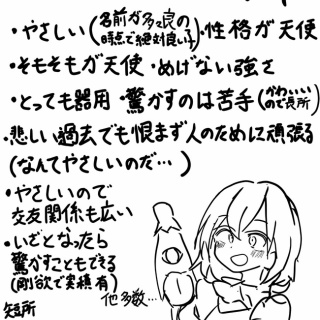 ・やさしい(名前が多々良の時点で絶対良い子)・性格が天使
・そもそもが天使・めげない強さ
・とっても器用・驚かすのは苦手(かわいいので長所)
・悲しい過去でも恨まず人のために頑張る
(なんてやさしいのだ…)
・やさしいので
交友関係も広い
・いざとなったら
驚かすこともできる
(剛欲で実積有)
他多数…
短所